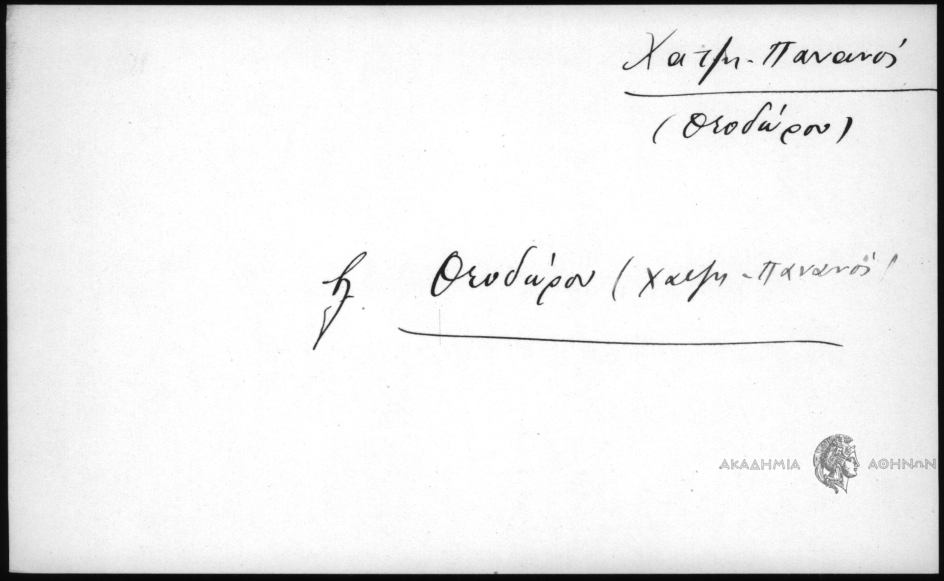 Χατζη-Παναγής
(Θεοδώρου)
βλ. Θεοδώρου (Χατζη-Παναγής)
ΑΚΑΔΗΜΙΑ ΑΘΗΝΩΝ